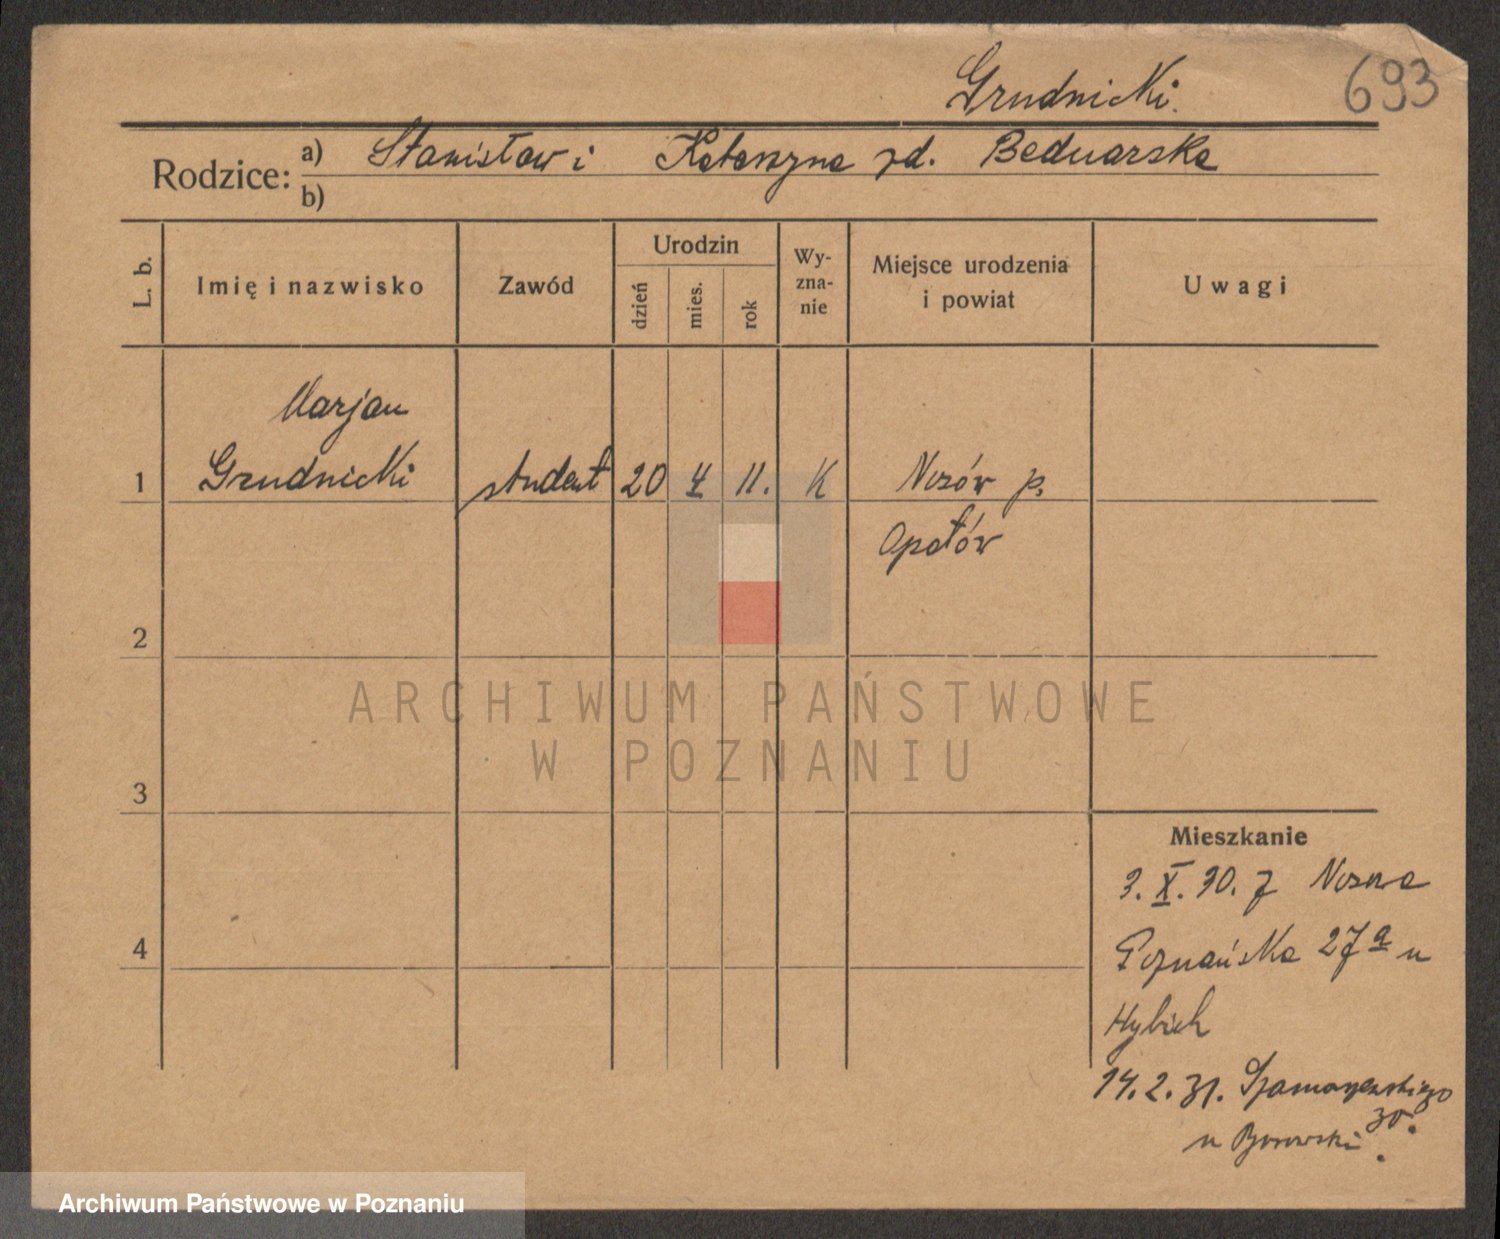 Grudnicki.
693
Rodzice:
a) Stanisław i Katarzyna zd. Bednarska
b)
L. b.
Imię i nazwisko
Zawód
Urodzin
dzień
mies.
rok
Wy-
zna-
nie
Miejsce urodzenia
i powiat
Uwagi
Marjan
1 Grudnicki student 20 4 11. K p.
Opatów
2
ARCHIWUM PAŃSTWOWE
W POZNANIU
3
Mieszkanie
3. X. 30. z
4
Poznańska 27a u
Hybich
14. 2. 31.
30.
u Borowski.
Archiwum Państwowe w Poznaniu